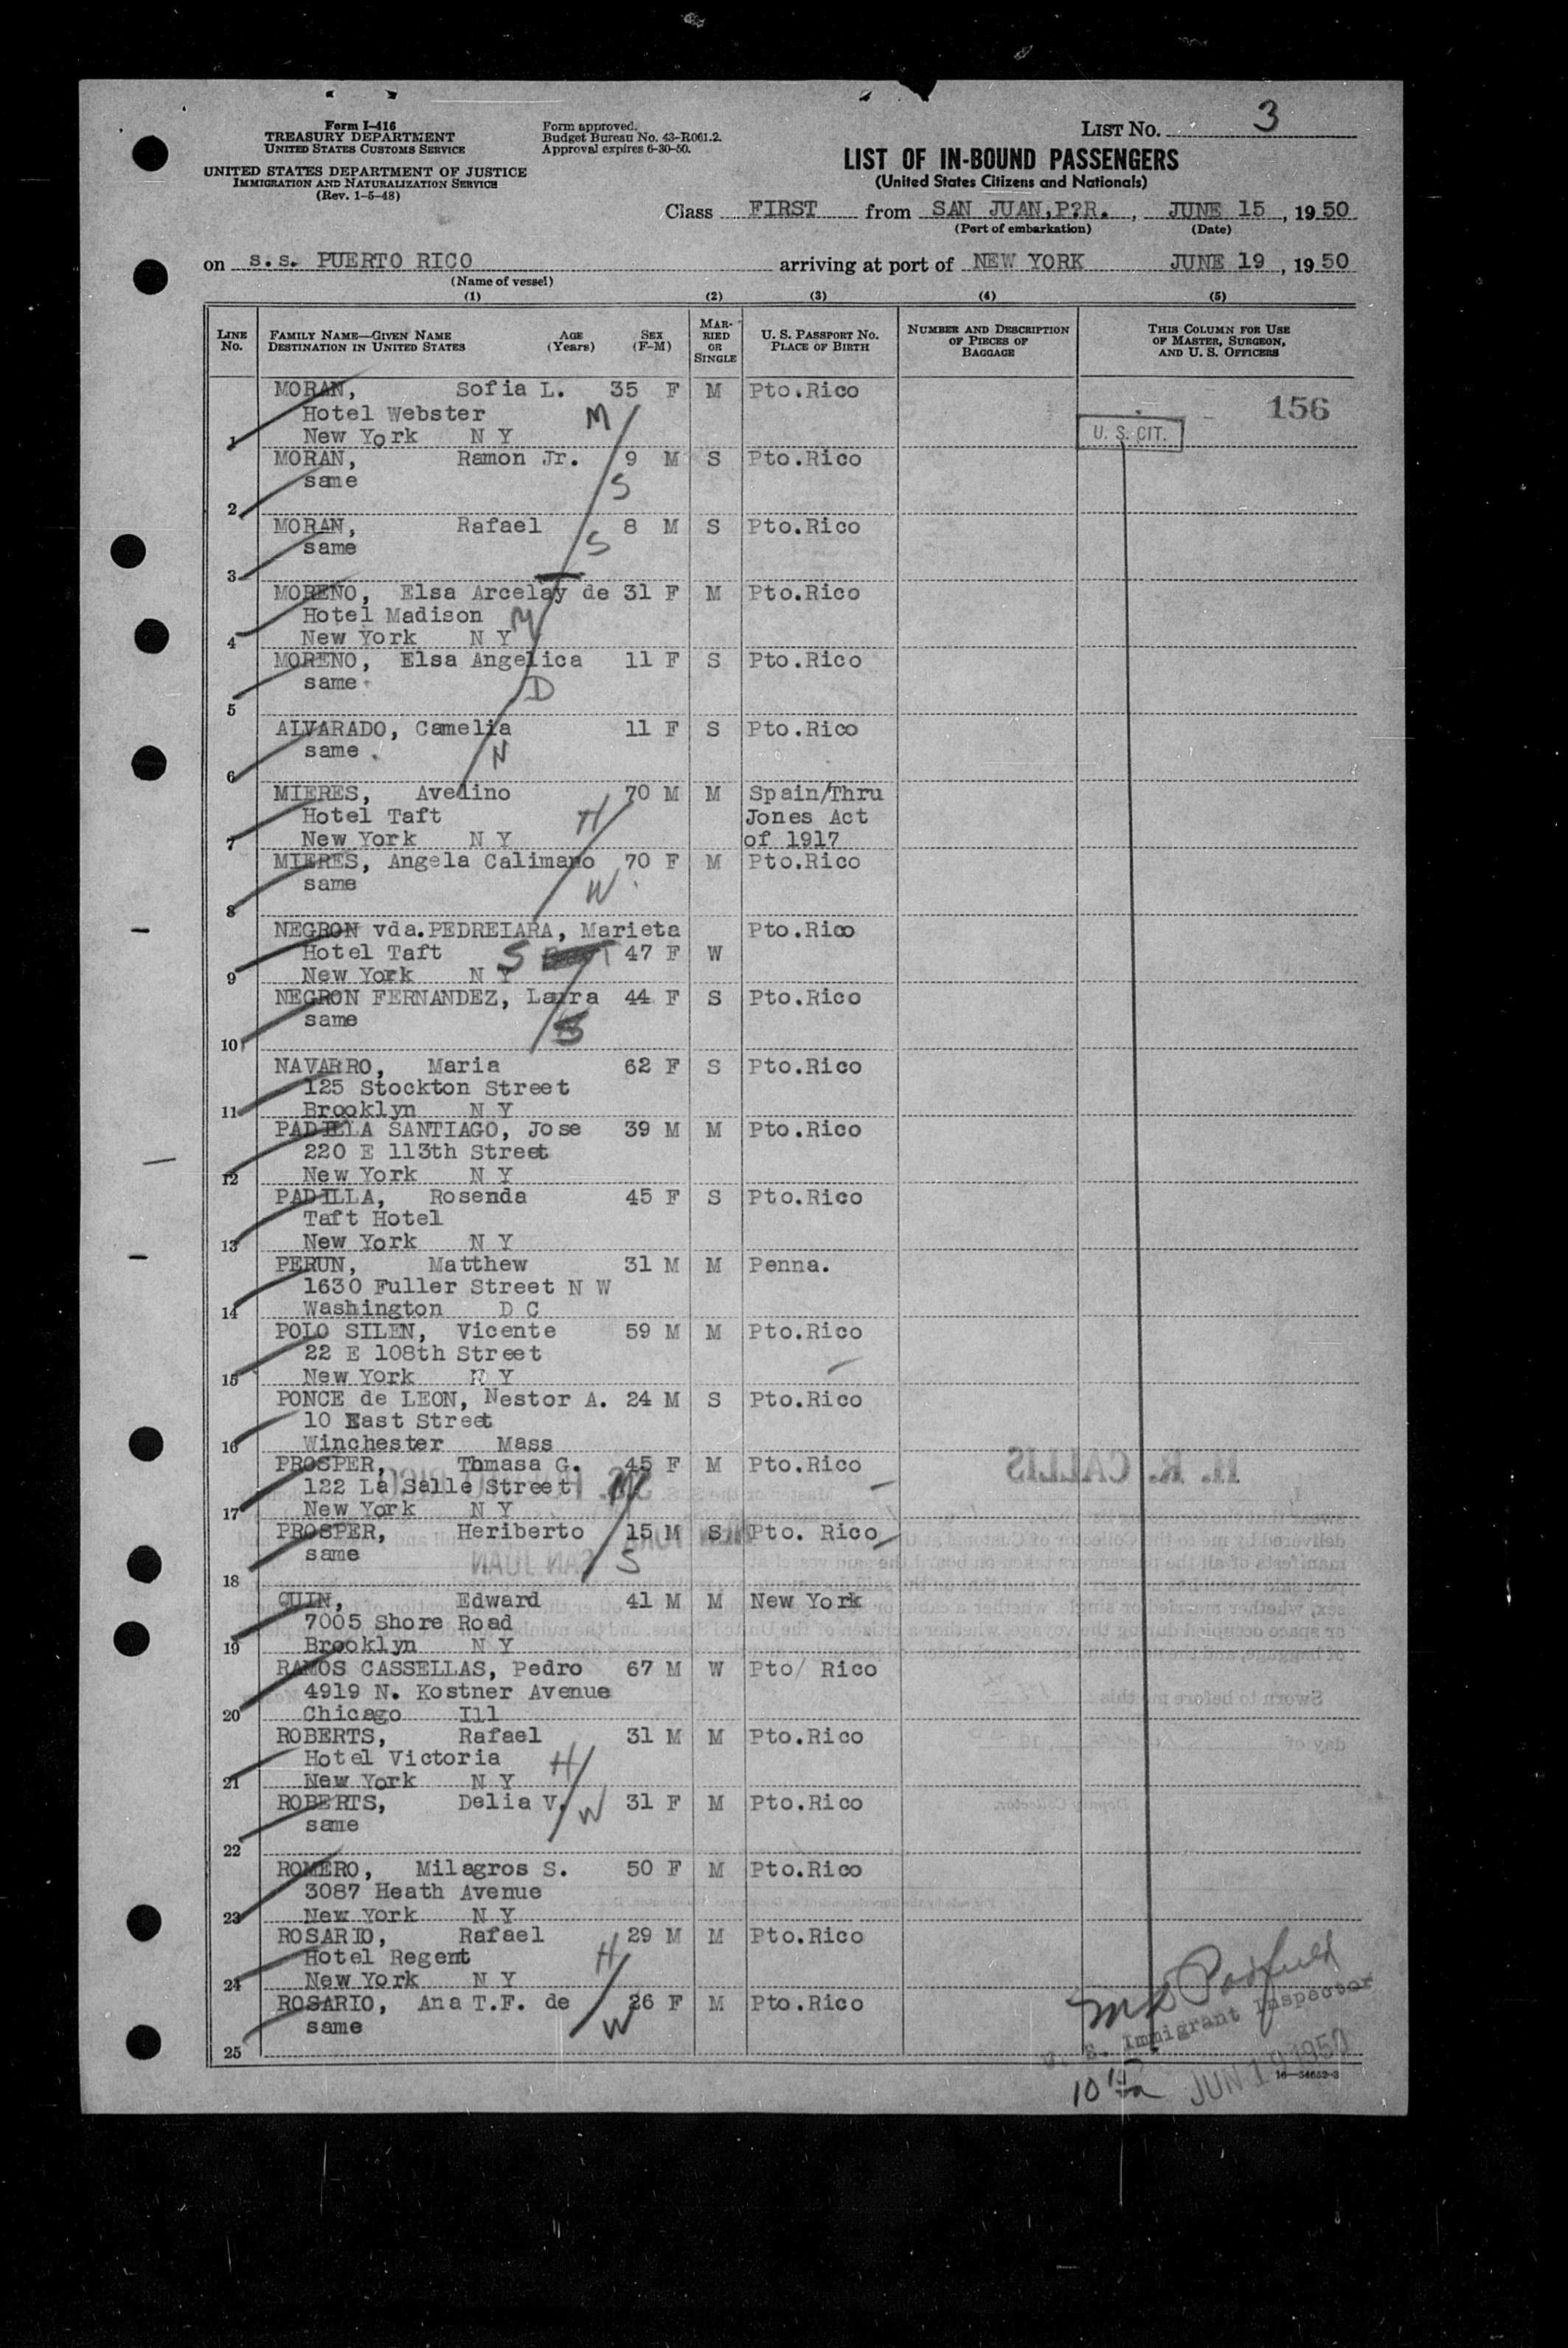 Form I-416
TREASURY DEPARTMENT
UNITED STATES CUSTOMS SERVICE
UNITED STATES DEPARTMENT OF JUSTICE
IMMIGRATION AND NATURALIZATION SERVICE
(Rev. 1-5-48)
Form approved.
Budget Bureau No. 43-R061.2.
Approval expires 6-30-50.
LIST NO. 3
LIST OF IN-BOUND PASSENGERS
(United States Citizens and Nationals)
Class FIRST from SAN JUAN,P?R. , JUNE 15 , 19 50
(Port of embarkation) (Date)
on s.s. PUERTO RICO arriving at port of NEW YORK JUNE 19 , 19 50
(Name of vessel)
(1) (2) (3) (4) (5)
LINE No. FAMILY NAME—GIVEN NAME DESTINATION IN UNITED STATES AGE (Years) SEX (F-M) MARRIED OR SINGLE U. S. PASSPORT NO. PLACE OF BIRTH NUMBER AND DESCRIPTION OF PIECES OF BAGGAGE THIS COLUMN FOR USE OF MASTER, SURGEON, AND U. S. OFFICERS
MORAN, Sofia L. 35 F M Pto.Rico
156
Hotel Webster M
1 New York N Y U. S. CIT.
MORAN, Ramon Jr. 9 M S Pto.Rico
same S
2
MORAN, Rafael 8 M S Pto.Rico
same S
3
MORENO, Elsa Arcelay de 31 F M Pto.Rico
Hotel Madison M
4 New York N Y
MORENO, Elsa Angelica 11 F S Pto.Rico
same D
5
ALVARADO, Camelia 11 F S Pto.Rico
same N
6
MIERES, Avelino 70 M M Spain/Thru
Hotel Taft H Jones Act
7 New York N Y of 1917
MIERES, Angela Calimano 70 F M Pto.Rico
same W
8
NEGRON vda.PEDREIARA, Marieta Pto.Rico
Hotel Taft S 47 F W
9 New York N Y
NEGRON FERNANDEZ, Laura 44 F S Pto.Rico
same S
10
NAVARRO, Maria 62 F S Pto.Rico
125 Stockton Street
11 Brooklyn N Y
PADILLA SANTIAGO, Jose 39 M M Pto.Rico
220 E 113th Street
12 New York N Y
PADILLA, Rosenda 45 F S Pto.Rico
Taft Hotel
13 New York N Y
PERUN, Matthew 31 M M Penna.
1630 Fuller Street N W
14 Washington D C
POLO SILEN, Vicente 59 M M Pto.Rico
22 E 108th Street
15 New York N Y
PONCE de LEON, Nestor A. 24 M S Pto.Rico
10 East Street
16 Winchester Mass
PROSPER, Tomasa G. 45 F M Pto.Rico
122 La Salle Street M
17 New York N Y
PROSPER, Heriberto 15 M S Pto. Rico
same S
18
QUIN, Edward 41 M M New York
7005 Shore Road
19 Brooklyn N Y
RAMOS CASSELLAS, Pedro 67 M W Pto/ Rico
4919 N. Kostner Avenue
20 Chicago Ill
ROBERTS, Rafael 31 M M Pto.Rico
Hotel Victoria H
21 New York N Y
ROBERTS, Delia V. 31 F M Pto.Rico
same W
22
ROMERO, Milagros S. 50 F M Pto.Rico
3087 Heath Avenue
23 New York N Y
ROSARIO, Rafael 29 M M Pto.Rico
Hotel Regent H
24 New York N Y
ROSARIO, Ana T.F. de 26 F M Pto.Rico
same W
25
U. S. Immigrant Inspector
JUN 19 1950
16—54652-3